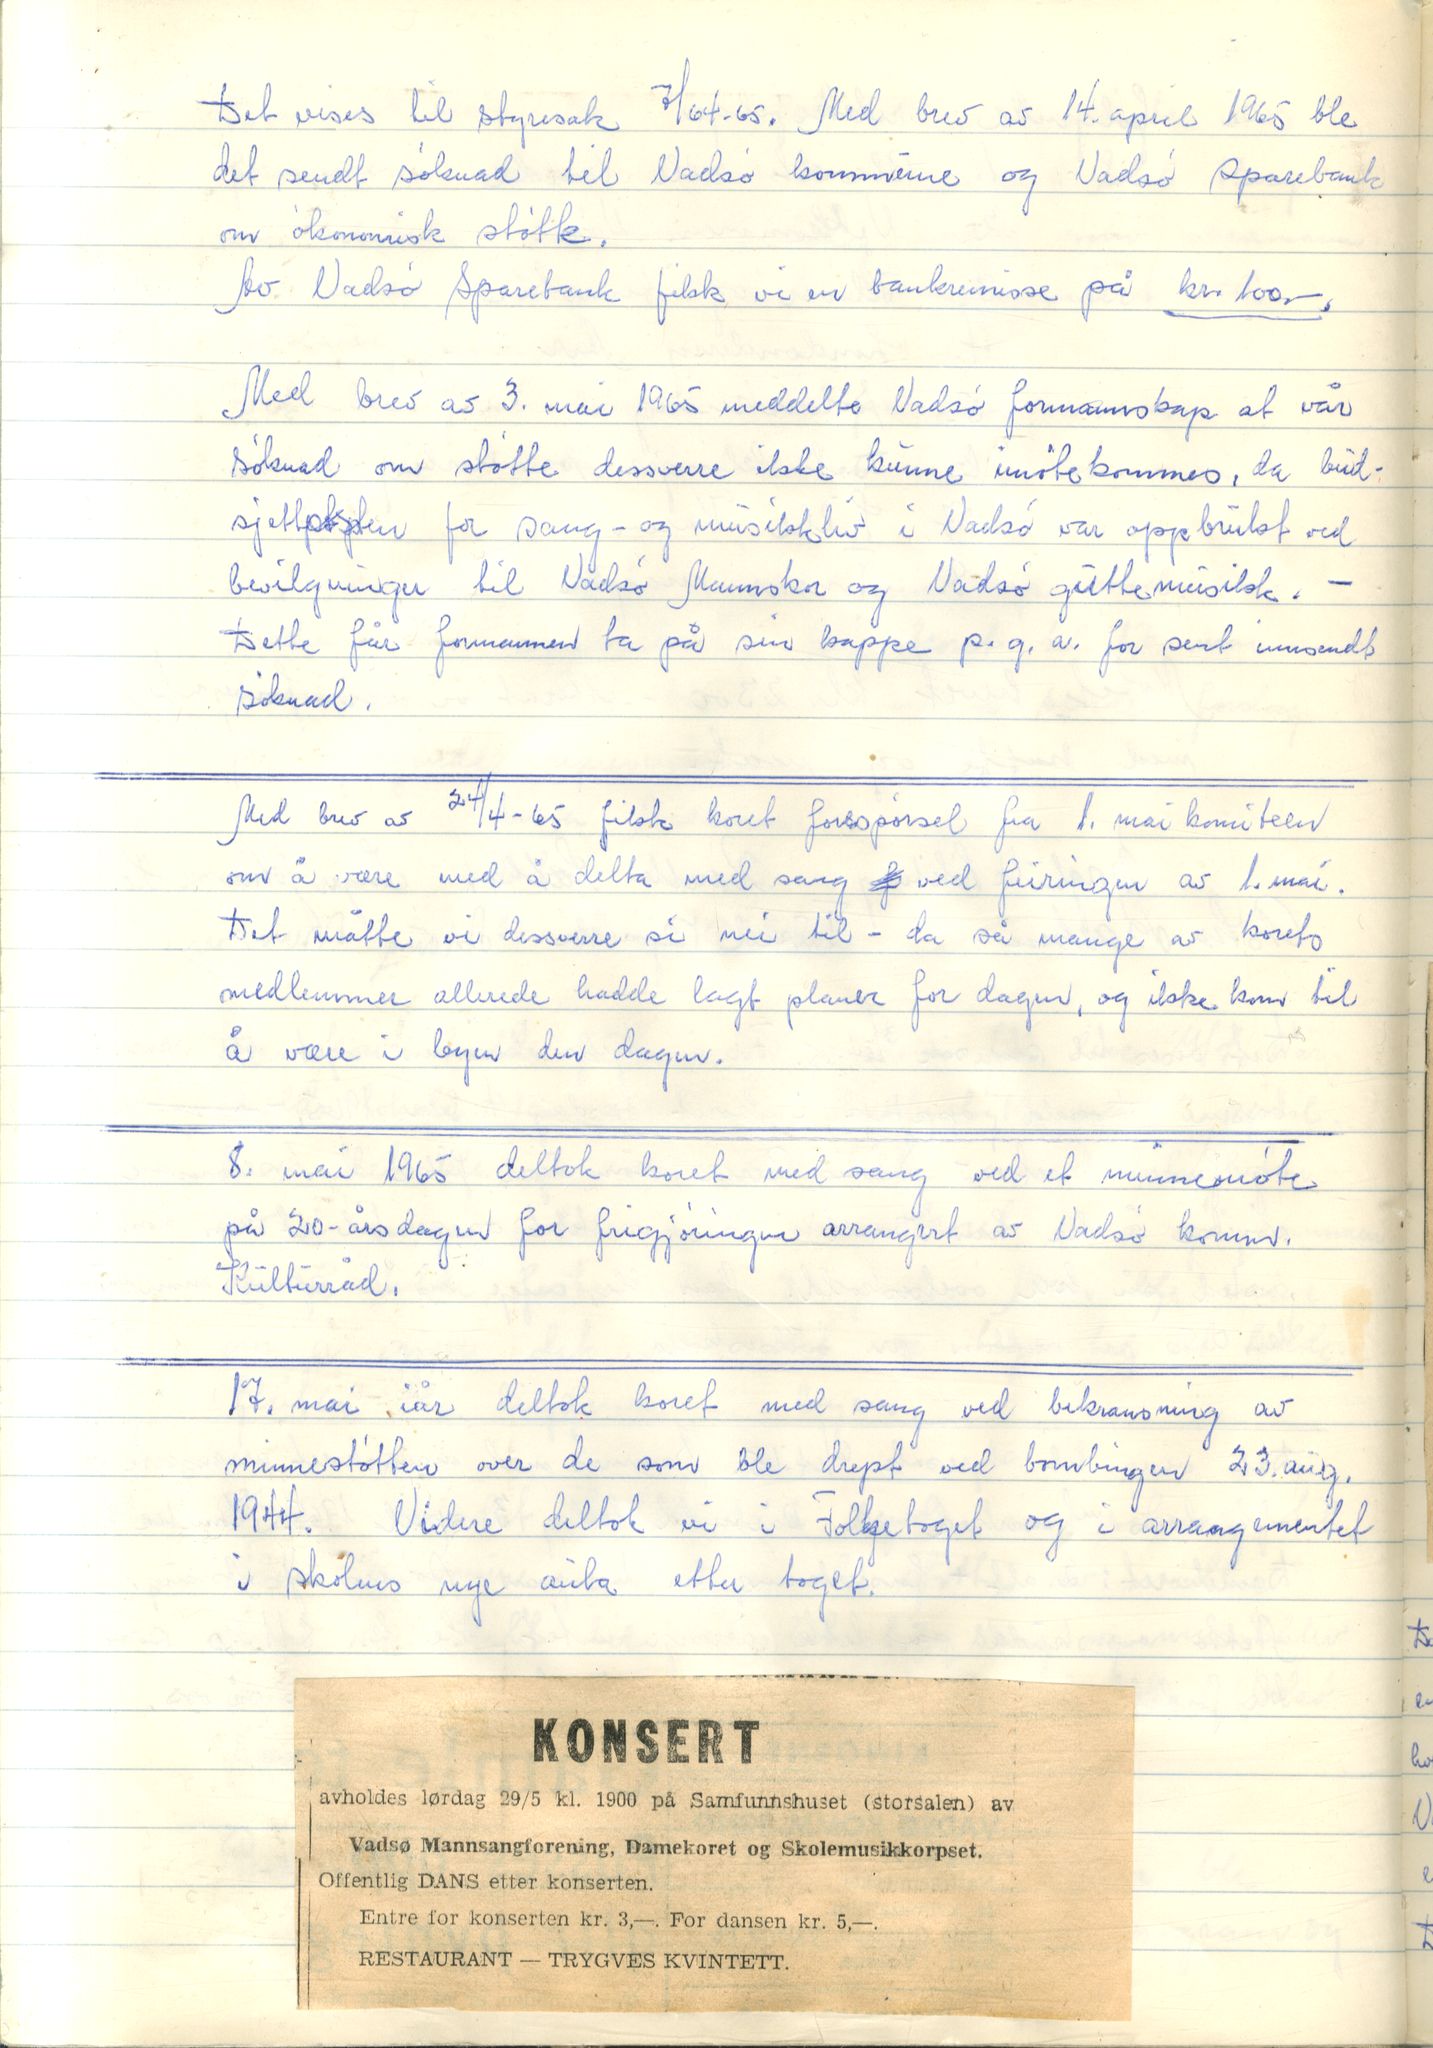 Det vises til styresak 7/64-65. Med brev av 14. april 1965 ble
det sendt söknad til Vadsö kommune og Vadsö Sparebank
om ökonomisk stötte.
Av Vadsö Sparebank fikk vi en bankremisse på kr. 100,-.
Med brev av 3. mai 1965 meddelte Vadsö formannskap at vår
söknad om stötte dessverre ikke kunne imötekommes, da bud-
sjettposten for sang- og musikkliv i Vadsö var oppbrukt ved
bevilgninger til Vadsö Mannskor og Vadsö guttemusikk. —
Dette får formannen ta på sin kappe p.g.a. for sent innsendt
söknad.
Med brev av 24/4-65 fikk koret forespörsel fra 1. mai komiteen
om å være med å delta med sang ved feiringen av 1. mai.
Det måtte vi dessverre si nei til - da så mange av korets
medlemmer allerede hadde lagt planer for dagen, og ikke kom til
å være i byen den dagen.
8. mai 1965 deltok koret med sang ved et minnemöte
på 20-årsdagen for frigjöringen arrangert av Vadsö komm.
Kulturråd.
17. mai iår deltok koret med sang ved bekransning av
minnestötten over de som ble drept ved bombingen 23. aug.
1944. Videre deltok vi i Folketoget og i arrangementet
i skolens nye aula etter toget.
KONSERT
avholdes lørdag 29/5 kl. 1900 på Samfunnshuset (storsalen) av
Vadsø Mannsangforening, Damekoret og Skolemusikkorpset.
Offentlig DANS etter konserten.
Entre for konserten kr. 3,—. For dansen kr. 5,—.
RESTAURANT — TRYGVES KVINTETT.